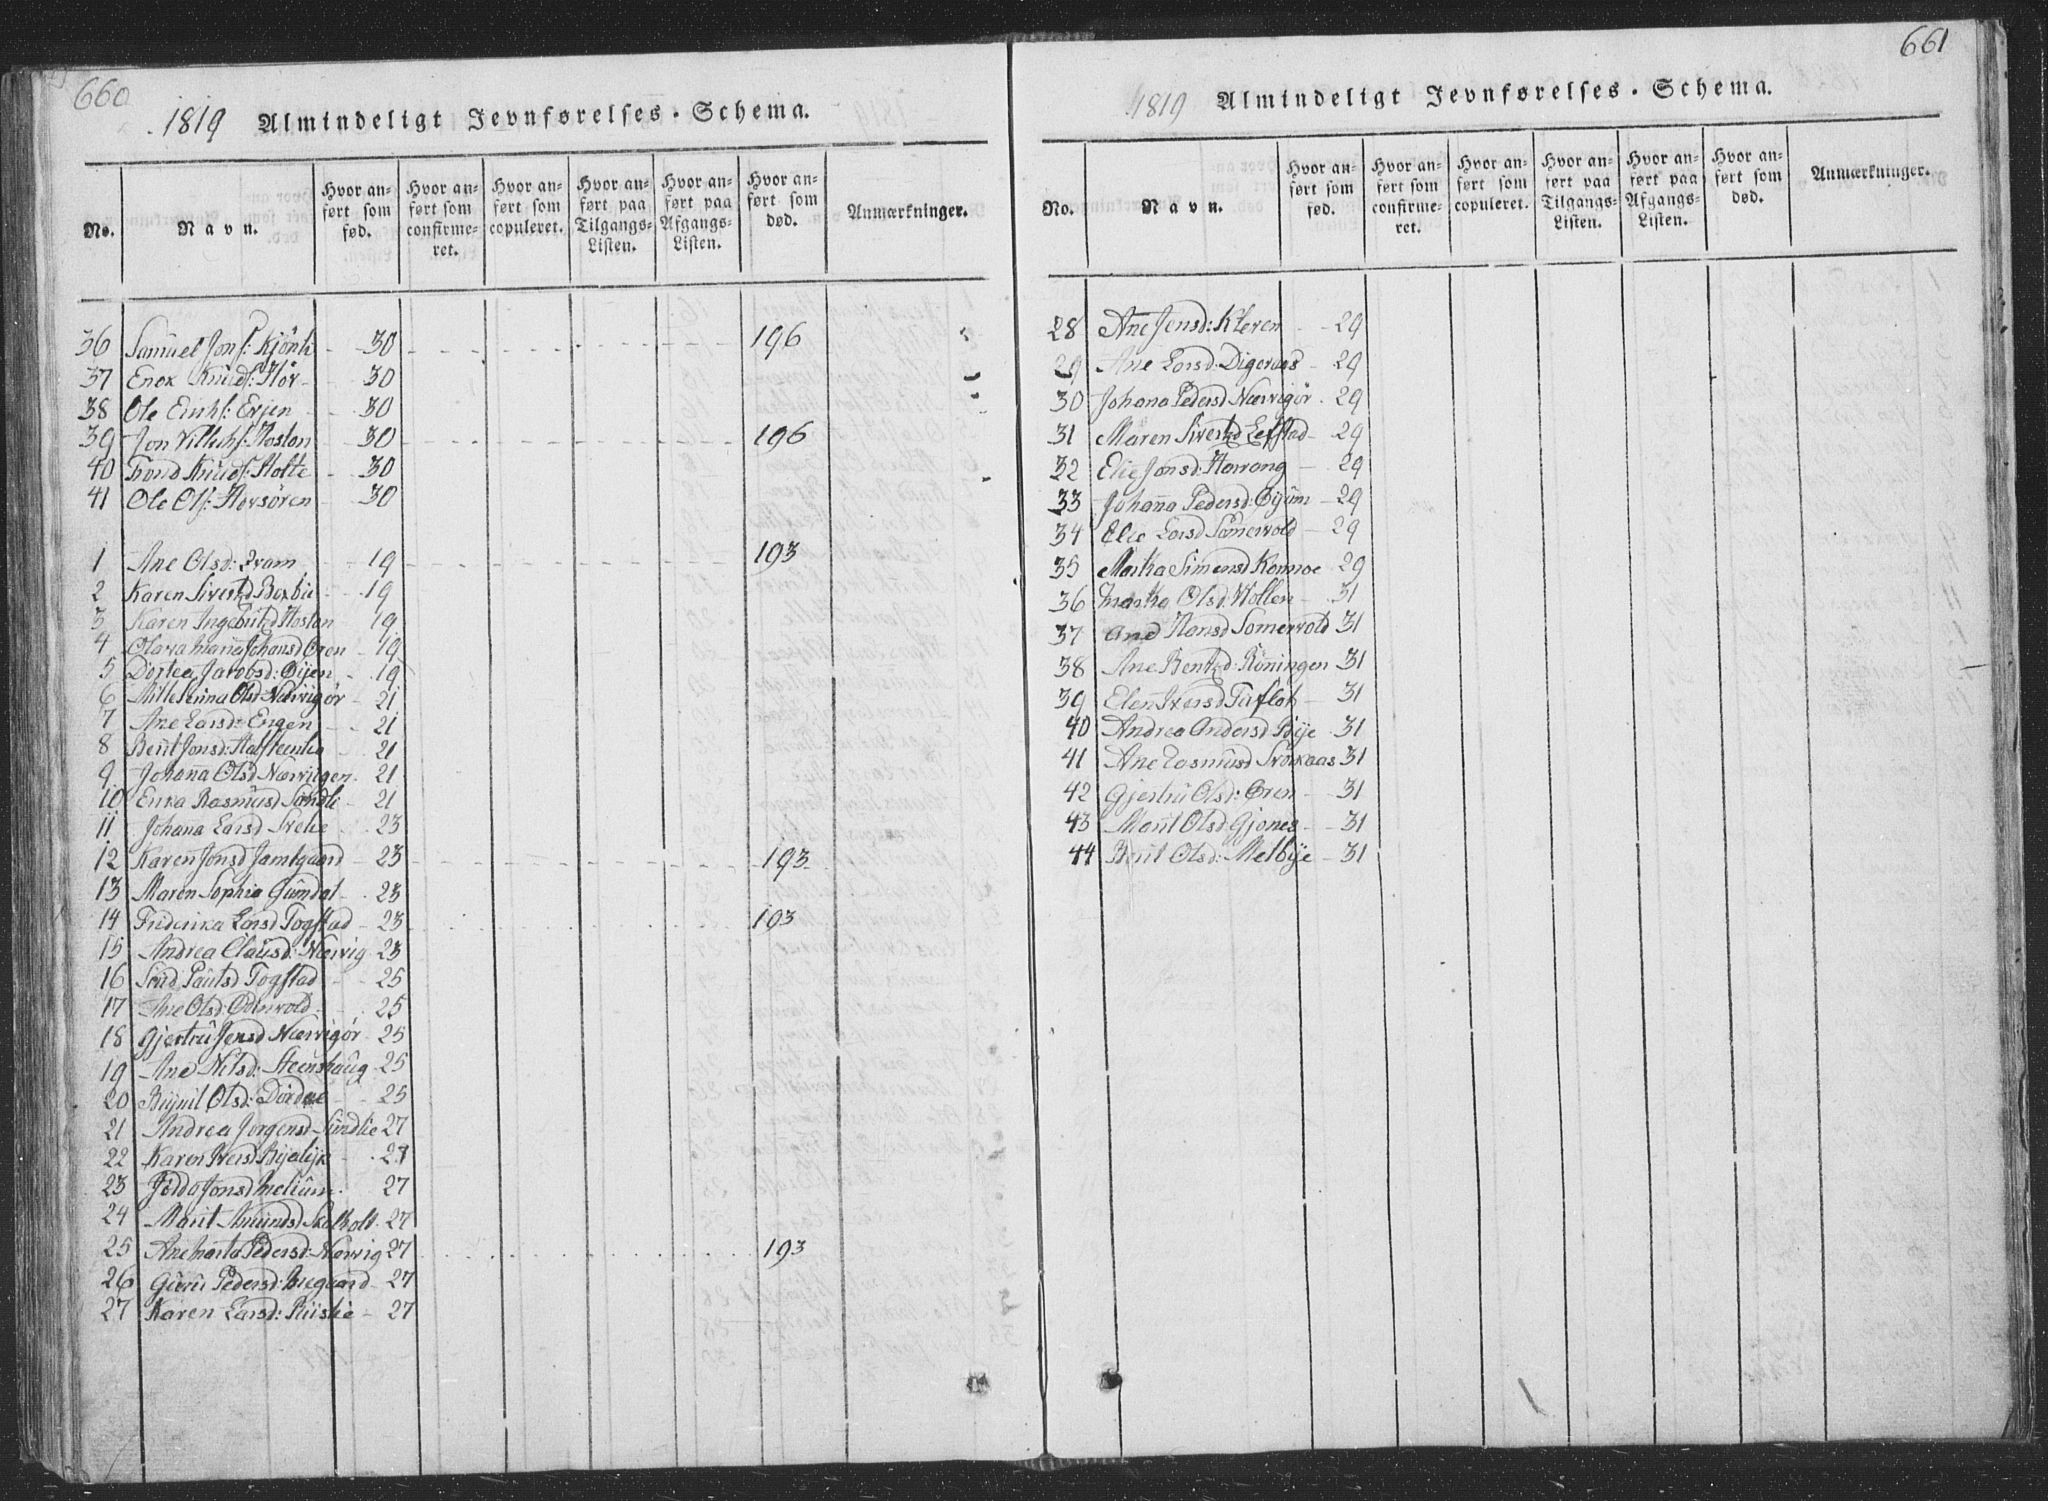 660
1819 Almindeligt Jevnførelses-Schema.
No. Navn. Hvor anført som fød. Hvor anført som confirmeret. Hvor anført som copuleret. Hvor anført paa Tilgangs-Listen. Hvor anført paa Afgangs-Listen. Hvor anført som død. Anmærkninger.
36 Samuel Jons: Kjönli 30 196
37 Enox Knuds: Hör 30
38 Ole Erichs: Erjen 30
39 Jon Villichs: Hoston 30 196
40 Trond Knuds: Holte 30
41 Ole Ols: Horsören 30
1 Ane Olsd: Fram 19 193
2 Karen Sivertsd 19
3 Karen Ingebritsd Hoston 19
4 Olava Marie Johansd Ören 19
5 Dortea Jacobsd: Öijen 19
6 Olsd Nærvigör 21
7 Ane Larsd: Engen 21
8 Berit Jonsd: 21
9 Johanna Olsd Nærvigen 21
10 Erika Rasmusd Sundli 21
11 Johana Larsd 23
12 Karen Jonsd Jamtgaard 23 193
13 Maren Sophia Gumdal 23
14 Friderika Larsd Togstad 23 193
15 Andrea Clausd: Nærvig 23
16 Siri Paulsd Togstad 25
17 Ane Olsd: 25
18 Gjertru Jensd Nærvigör 25
19 Ane Nilsd: Steenshaug 25
20 Olsd: Dordal 25
21 Andrea Jörgensd Sundlie 27
22 Karen Iversd 27
23 Jonsd Melium 27
24 Marit Amundsd Skolholt 27
25 Ane Marta Pedersd: Nærvig 27 193
26 Guru Pedersd: 27
27 Karen Larsd: 27
661
1819 Almindeligt Jevnførelses-Schema.
No. Navn. Hvor anført som fød. Hvor anført som confirmeret. Hvor anført som copuleret. Hvor anført paa Tilgangs-Listen. Hvor anført paa Afgangs-Listen. Hvor anført som død. Anmærkninger.
28 Ane Jensd: Kleven 29
29 Ane Larsd: Digernes 29
30 Johana Pedersd Nærvigör 29
31 Maren Sivertsd Lefstad 29
32 Elie Jonsd: Hovrang 29
33 Johanna Pedersd: Öijum 29
34 Elie Larsd Somervold 29
35 Martha Simensd 29
36 Martha Olsd: Wollen 31
37 Ane Hansd Somervold 31
38 Ane Bentsd: Röningen 31
39 Elen Iversd 31
40 Andrea Andersd Böije 31
41 Ane Rasmusd 31
42 Gjertru Olsd: Ören 31
43 Marit Olsd Gjönes 31
44 Berit Olsd: Melbÿe 31